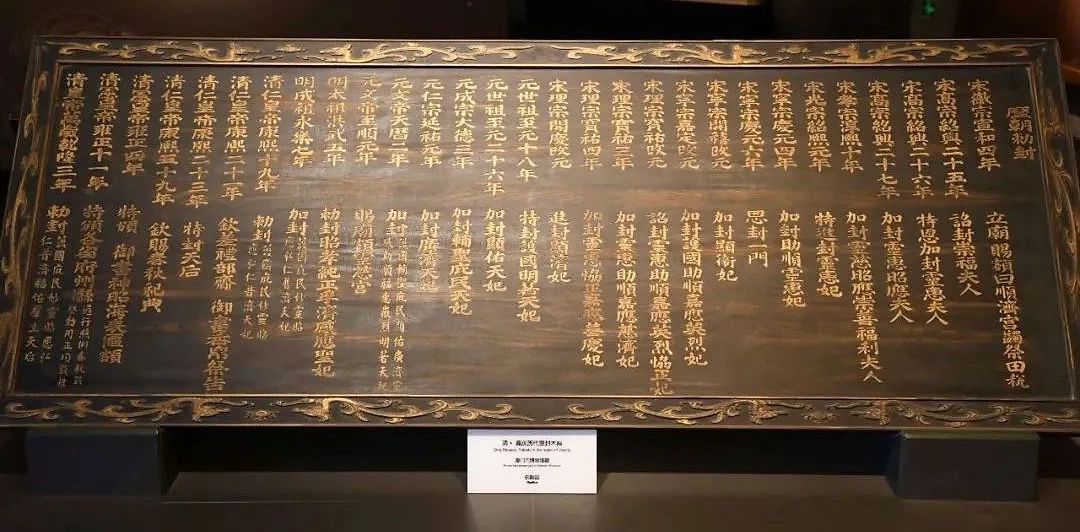 歷朝勅封
宋徽宗宣和四年 立廟賜額曰順濟宮蠲祭田稅
宋高宗紹興二十五年 詔封崇福夫人
宋高宗紹興二十六年 特恩加封靈惠夫人
宋高宗紹興二十七年 加封靈惠昭應夫人
宋孝宗淳熙十年 加封靈慈昭應崇善福利夫人
宋光宗紹熙元年 特進封靈惠妃
宋寧宗慶元四年 加封助順靈惠妃
宋寧宗慶元六年 恩封一門
宋寧宗開禧改元 加封顯衛妃
宋寧宗嘉定改元 加封護國助順嘉應英烈妃
宋理宗寶祐改元 詔封靈惠助順嘉應英烈協正妃
宋理宗寶祐二年 加封靈惠助順嘉應慈濟妃
宋理宗寶祐四年 加封靈惠協正嘉應善慶妃
宋理宗開慶改元 進封顯濟妃
元世祖至元十八年 特封護國明著天妃
元世祖至元二十六年 加封顯佑天妃
元成宗大德三年 加封輔聖庇民天妃
元仁宗延祐元年 加封廣濟天妃
元文帝天曆二年 加封
元文帝至順元年 賜廟額靈慈宮
明太祖洪武五年 勅封昭孝純正孚濟感應聖妃
明成祖永樂七年 加封護國庇民妙靈昭應弘仁普濟天妃
清仁皇帝康熙十九年 勅封護國庇民妙靈昭應弘仁普濟天妃
清仁皇帝康熙二十一年 欽差禮部齎 御書香帛祭告
清仁皇帝康熙二十三年 特封天后
清仁皇帝康熙五十九年 欽賜春秋祀典
清憲皇帝雍正四年 特頒 御書神昭海表匾額
清憲皇帝雍正十一年 特頒令各省府州縣
清皇帝萬萬歲乾隆三年 勅封護國庇民妙靈昭應弘仁普濟福佑群生天后